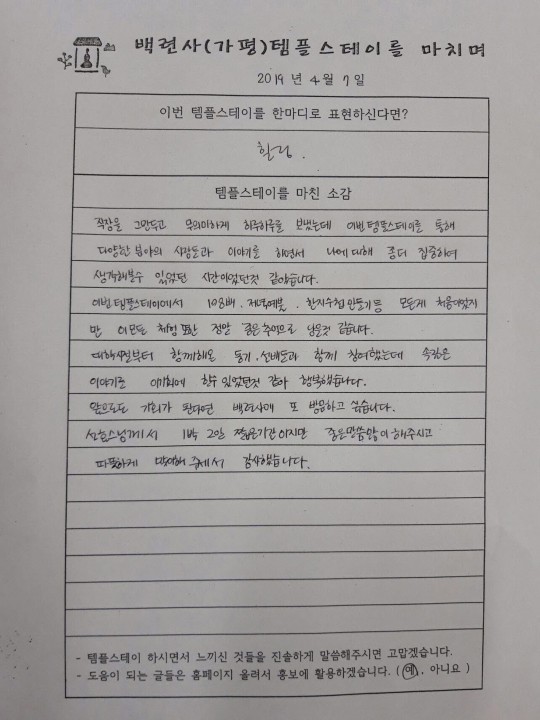 백련사(가평)템플스테이를 마치며
2019 년 4 월 7 일
이번 템플스테이를 한마디로 표현하신다면?
힐링.
템플스테이를 마친 소감
직장을 그만두고 무의미하게 하루하루를 보냈는데 이번 템플스테이를 통해
다양한 분야의 사람들과 이야기를 하면서 나에 대해 좀더 집중하며
생각해볼수 있었던 시간이었던것 같습니다.
이번 템플스테이에서 108배, 저녁예불, 한지수첩 만들기 등 모든게 처음이었지
만 이 모든 체험 또한 정말 좋은 추억으로 남을것 같습니다.
대학시절부터 함께해온 동기, 선배들과 함께 참여했는데 속깊은
이야기도 이기회에 할수 있었던것 같아 행복했습니다.
앞으로도 기회가 된다면 백련사에 또 방문하고 싶습니다.
선효스님께서 1박 2일 짧은기간이지만 좋은말씀많이 해주시고
따뜻하게 맞이해 주셔서 감사했습니다.
- 템플스테이 하시면서 느끼신 것들을 진솔하게 말씀해주시면 고맙겠습니다.
- 도움이 되는 글들은 홈페이지 올려서 홍보에 활용하겠습니다. (예, 아니요)